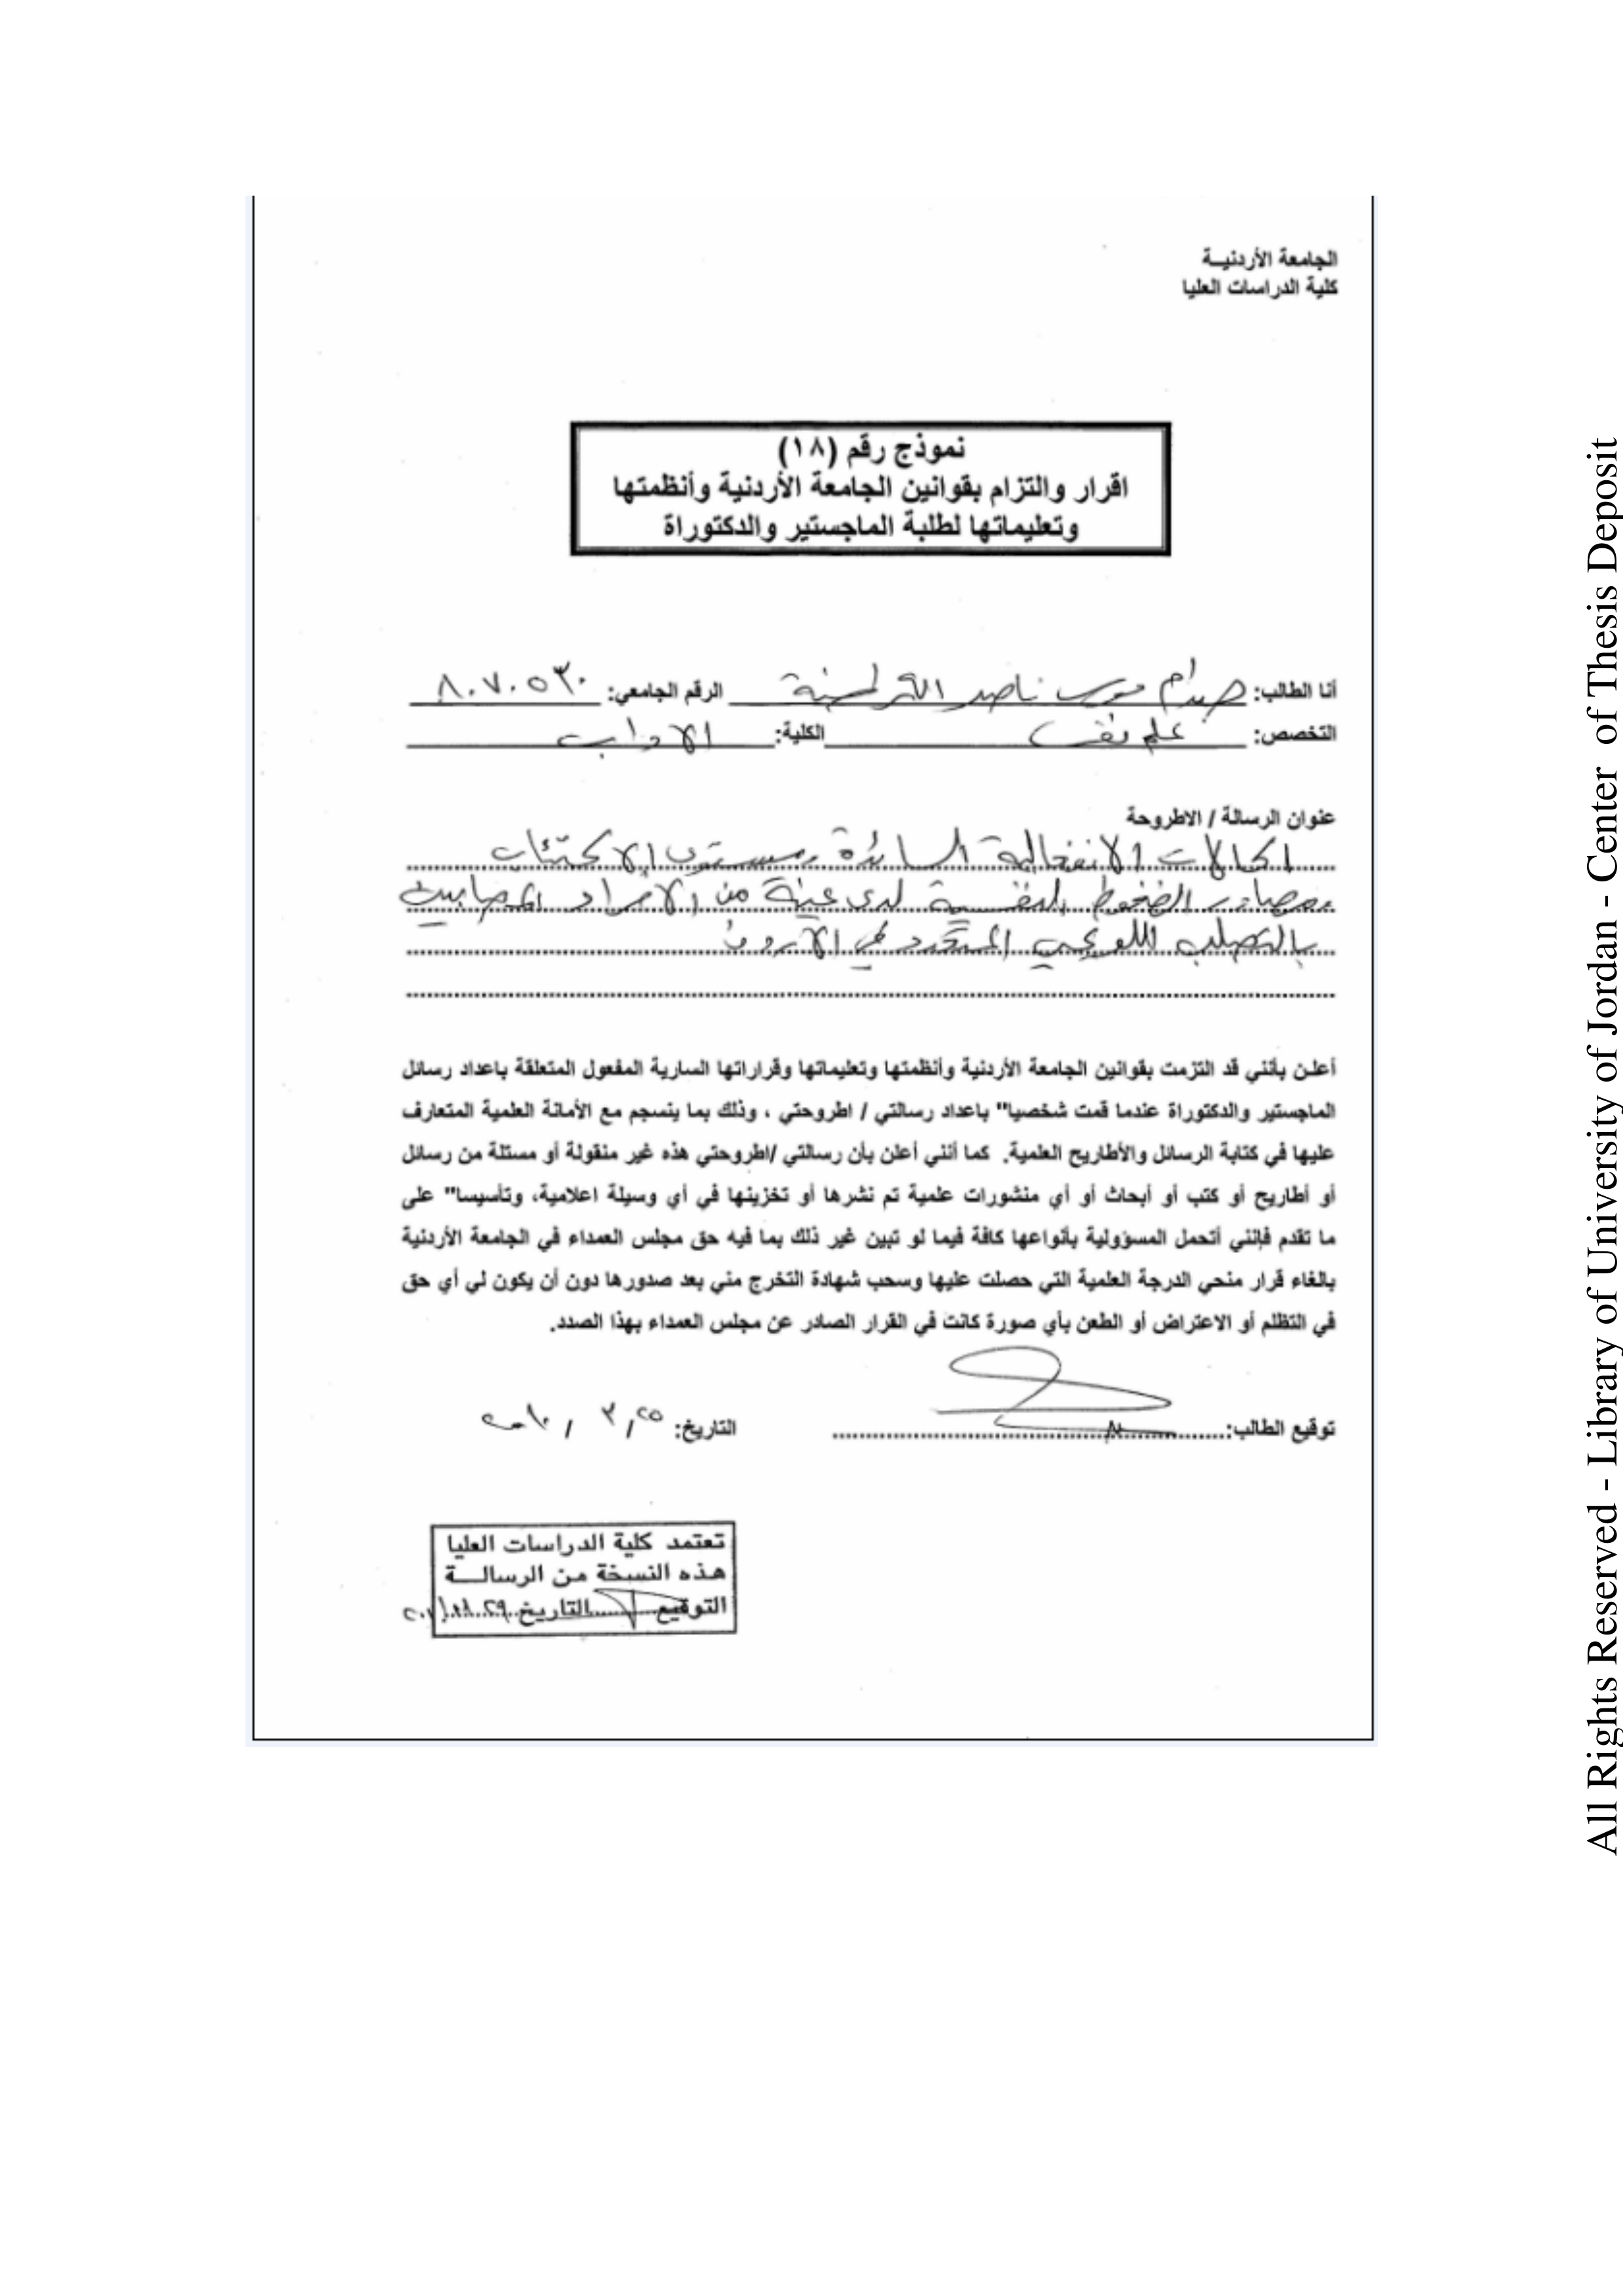 الجامعة الأردنيــة
كلية الدراسات العليا
نموذج رقم (١٨)
اقرار والتزام بقوانين الجامعة الأردنية وأنظمتها
وتعليماتها لطلبة الماجستير والدكتوراة
أنا الطالب: صدام موسى ناصر الرقم الجامعي: ٨٠٧٠٥٣٠
التخصص: علم نفس الكلية: الاداب
عنوان الرسالة / الاطروحة
الحالات الانفعالية السائدة ومستوى الاكتئاب
ومصادر الضغوط النفسية لدى عينة من الافراد المصابين
بالتصلب اللويحي المتعدد في الاردن
أعلن بأنني قد التزمت بقوانين الجامعة الأردنية وأنظمتها وتعليماتها وقراراتها السارية المفعول المتعلقة باعداد رسائل
الماجستير والدكتوراة عندما قمت شخصيا" باعداد رسالتي / اطروحتي ، وذلك بما ينسجم مع الأمانة العلمية المتعارف
عليها في كتابة الرسائل والأطاريح العلمية. كما أنني أعلن بأن رسالتي /اطروحتي هذه غير منقولة أو مستلة من رسائل
أو أطاريح أو كتب أو أبحاث أو أي منشورات علمية تم نشرها أو تخزينها في أي وسيلة اعلامية، وتأسيسا" على
ما تقدم فإنني أتحمل المسؤولية بأنواعها كافة فيما لو تبين غير ذلك بما فيه حق مجلس العمداء في الجامعة الأردنية
بالغاء قرار منحي الدرجة العلمية التي حصلت عليها وسحب شهادة التخرج مني بعد صدورها دون أن يكون لي أي حق
في التظلم أو الاعتراض أو الطعن بأي صورة كانت في القرار الصادر عن مجلس العمداء بهذا الصدد.
توقيع الطالب: التاريخ: ٢٥/ ٣ /
تعتمد كلية الدراسات العليا
هذه النسخة من الرسالــة
التوقيع التاريخ
All Rights Reserved - Library of University of Jordan - Center of Thesis Deposit